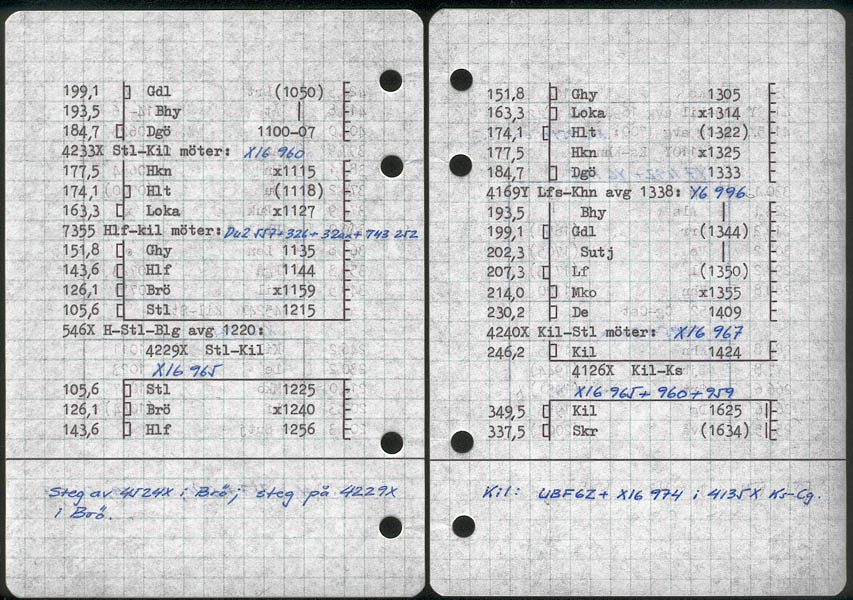 199,1 Gdl (1050)
193,5 Bhy |
184,7 Dgö 1100-07
4233X Stl-Kil möter: X16 960
177,5 Hkn x1115
174,1 Hlt (1118)
163,3 Loka x1127
7355 Hlf-kil möter: Du2 557+326+32xx+743 252
151,8 Ghy 1135
143,6 Hlf 1144
126,1 Brö x1159
105,6 Stl 1215
546X H-Stl-Blg avg 1220:
4229X Stl-Kil
X16 965
105,6 Stl 1225
126,1 Brö x1240
143,6 Hlf 1256
Steg av 4524X i Brö; steg på 4229X
i Brö.
151,8 Ghy 1305
163,3 Loka x1314
174,1 Hlt (1322)
177,5 Hkn x1325
184,7 Dgö 1333
4169Y Lfs-Khn avg 1338: Y6 996
193,5 Bhy |
199,1 Gdl (1344)
202,3 Sutj |
207,3 Lf (1350)
214,0 Mko x1355
230,2 De 1409
4240X Kil-Stl möter: X16 967
246,2 Kil 1424
4126X Kil-Ks
X16 965+960+959
349,5 Kil 1625
337,5 Skr (1634)
Kil: UBF6Z+X16 974 i 4135X Ks-Cg.